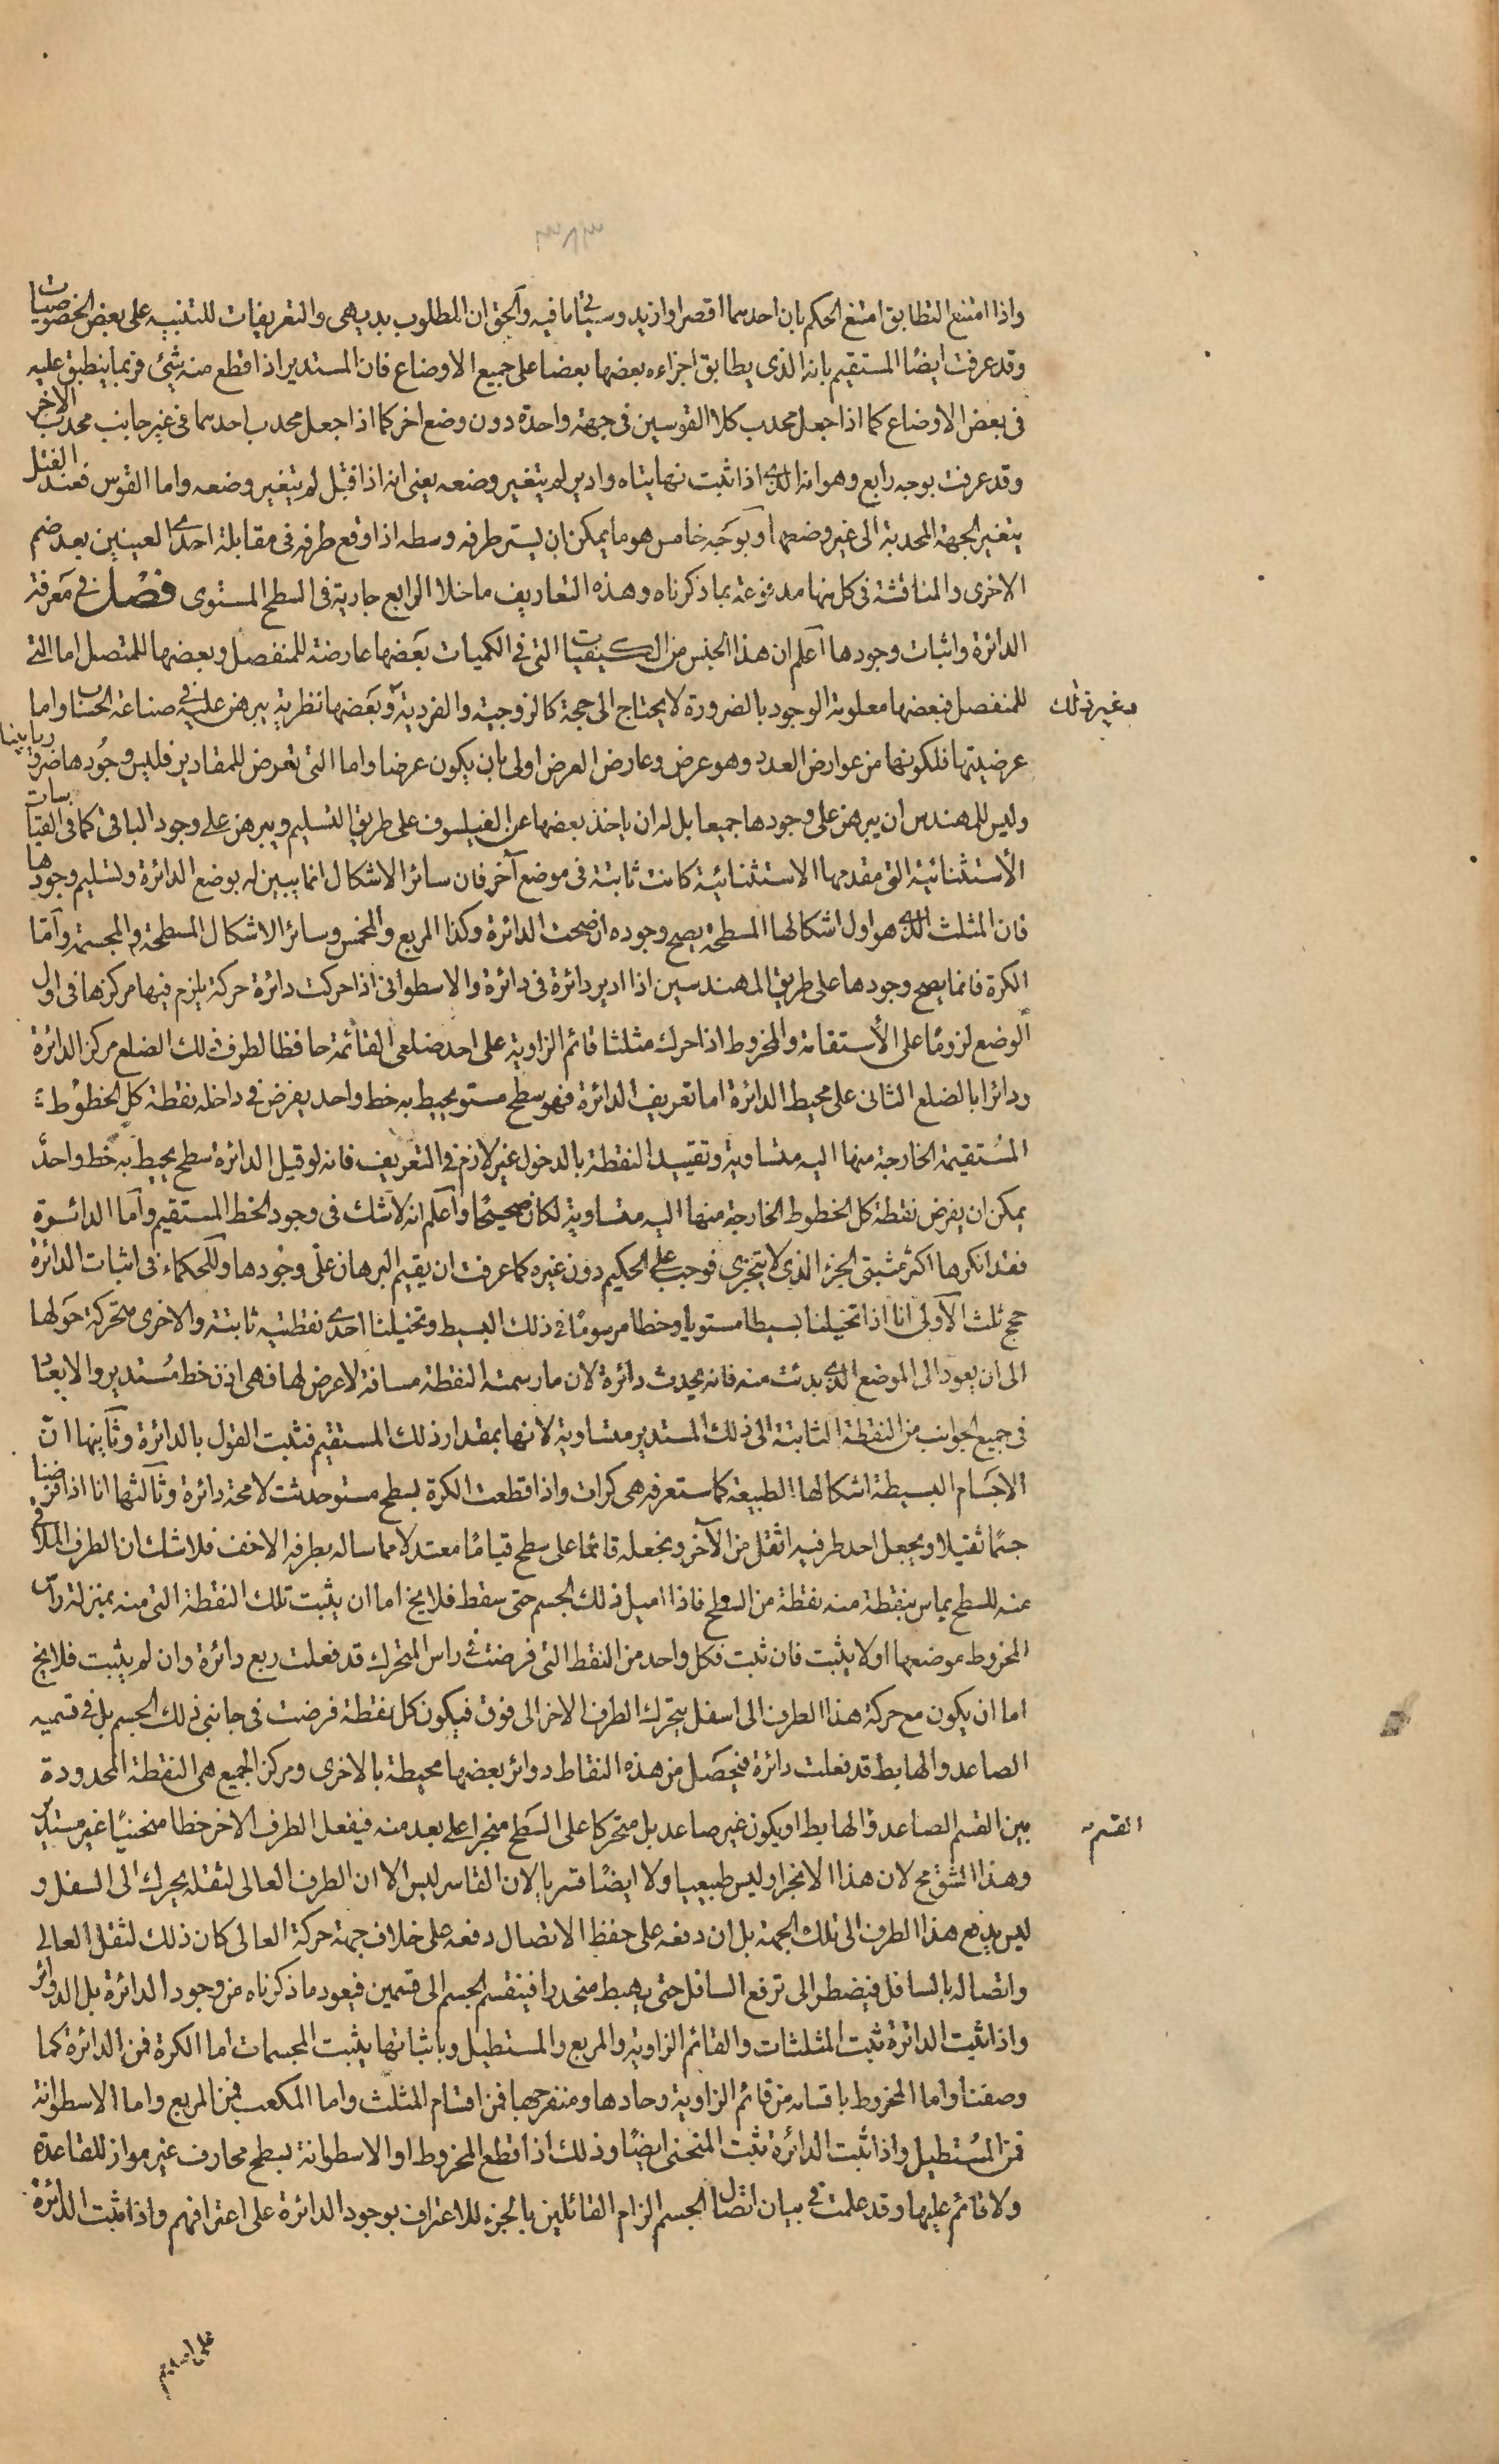 ٣٨٣
واذا امتنع التطابق امتنع الحكم بان احدهما اقصر او ازيد وسيأتي ما فيه والحق ان المطلوب بديهي والتعريفات للتنبيه على بعض الخصوصيات
وقد عرفت ايضا المستقيم بانه الذى يطابق اجزاءه بعضها بعضا على جميع الاوضاع فان المستدير اذا قطع منه شيئ فربما ينطبق عليه
فى بعض الاوضاع كما اذا جعل محدب كلا القوسين فى جهة واحدة دون وضع اخر كما اذا جعل محدب احدهما فى غير جانب محدب الاخر
وقد عرفت بوجه رابع وهو انه الذى اذا ثبت نهايتاه وادير لم يتغير وضعه يعنى انه اذا فتل لم يتغير وضعه واما القوس فعند الفتل
يتغير الجهة المحدبة الى غير وضعها وبوجه خامس هو ما يمكن ان يستر طرفه وسطه اذا وقع طرفه فى مقابلة احدى العينين بعد ضم
الاخرى والمناقشة فى كل منها مدفوعة بما ذكرناه وهذه التعاريف ما خلا الرابع جارية فى السطح المستوى فصل فى معرفة
الدائرة واثبات وجودها اعلم ان هذا الجنس من الكيفيات التى فى الكميات بعضها عارضة للمنفصل وبعضها للمتصل اما التى
للمنفصل فبعضها معلومة الوجود بالضرورة لا يحتاج الى حجة كالزوجية والفردية وبعضها نظرية يبرهن عليه فى صناعة الحساب واما
وغير ذلك
عرضيتها فلكونها من عوارض العدد وهو عرض وعارض العرض اولى بان يكون عرضا واما التى تعرض للمقادير فليس وجودها ضروريا بينا
وليس للمهندس ان يبرهن على وجودها جميعا بل له ان ياخذ بعضها عن الفيلسوف على طريق التسليم ويبرهن على وجود الباقى كما فى القياسات
الأستثنائية التى مقدمها الاستثنائية كانت ثابتة فى موضع آخر فان سائر الاشكال انما يبين له بوضع الدائرة وتسليم وجودها
فان المثلث الذى هو اول اشكالها المسطحة يصح وجوده ان صحت الدائرة وكذا المربع والمخمس وسائر الاشكال المسطحة والمجسمة وامّا
الكرة فانما يصح وجودها على طريق المهندسين اذا ادير دائرة فى دائرة والاسطوانى اذا حركت دائرة حركة يلزم فيها مركزها فى اول
الوضع لزومًا على الأستقامة والمخروط اذا حرك مثلثا قائم الزاوية على احد ضلعى القائمة حافظا لطرف ذلك الضلع مركز الدائرة
ودائرا بالضلع الثانى على محيط الدائرة اما تعريف الدائرة فهو سطح مستو يحيط به خط واحد يفرض فى داخله نقطة كل الخطوط
المُستقيمة الخارجة منها اليه متساوية وتقييد النقطة بالدخول غير لازم فى التعريف فانه لو قيل الدائرة سطح يحيط به خط واحد
يمكن ان يفرض نقطة كل الخطوط الخارجة منها اليه متساوية لكان صحيحًا واعلم انه لا شك فى وجود الخط المستقيم واما الدائرة
فقد انكرها اكثر مثبتى الجزء الذى لا يتجزى فوجب على الحكيم دون غيره كما عرفت ان يقيم البرهان على وجودها وللحكماء فى اثبات الدائرة
حجج ثلث الاولى انا اذا تخيلنا بسيطا مستويا وخطا مرسومًا فى ذلك البسيط وتخيلنا احدى نقطتيه ثابتة والاخرى متحركة حولها
الى ان يعود الى الموضع الذى بدئت منه فانه يحدث دائرة لان ما رسمته النقطة مسافة لا عرض لها فهى اذن خط مُستدير والابعاد
فى جميع الجوانب من النقطة الثابتة الى ذلك المستدير متساوية لانها بمقدار ذلك المستقيم فثبت القول بالدائرة وثانيها انّ
الاجسام البسيطة اشكالها الطبيعة كما ستعرفه هى كرات واذا قطعت الكرة بسطح مستو حدثت لا محة دائرة وثالثها انا اذا فرضنا
جسمًا ثقيلا ويجعل احد طرفيه اثقل من الآخر ونجعله قائما على سطح قيامًا معتدلا مماسا له بطرفه الاخف فلا شك ان الطرف الملاقى
منه للسطح يماس بنقطة منه نقطة من السطح فاذا اميل ذلك الجسم حتى سقط فلا يخ اما ان يثبت تلك النقطة التى منه بمنزلة رأس
المخروط موضعها او لا يثبت فان ثبت فكل واحد من النقط التى فرضت فى راس المتحرك قد فعلت ربع دائرة وان لم يثبت فلا يخ
اما ان يكون مع حركة هذا الطرف الى اسفل يتحرك الطرف الاخر الى فوق فيكون كل نقطة فرضت فى جانبى ذلك الجسم بل فى قسميه
الصاعد والهابط قد فعلت دائرة فيحصل من هذه النقاط دوائر بعضها محيطة بالاخرى ومركز الجميع هى النقطة المحدودة
بين القسم الصاعد والهابط او يكون غير صاعد بل متحركا على السطح منجرا على بعد منه فيفعل الطرف الاخر خطا منحنيًا غير مستدير
القسم
وهذا الشق مح لان هذا الانجرار ليس طبيعيا ولا ايضًا قسريا لان القاسر ليس الا ان الطرف العالى لثقله يحرك الى السفل و
ليس يدفع هذا الطرف الى تلك الجهة بل ان دفعه على حفظ الاتصال دفعه على خلاف جهة حركة العالى كان ذلك لثقل العالى
واتصاله بالسافل فيضطر الى ترفع السافل حتى يهبط منحدرا فينقسم الجسم الى قسمين فيعود ما ذكرناه من وجود الدائرة بل الدوائر
واذا ثبت الدائرة ثبت المثلثات والقائم الزاوية والمربع والمستطيل وباثباتها يثبت المجسمات اما الكرة فمن الدائرة كما
وصفنا واما المخروط باقسامه من قائم الزاوية وحادها ومنفرجها فمن اقسام المثلث واما المكعب فمن المربع واما الاسطوانة
فمن المُستطيل واذا ثبت الدائرة ثبت المنحنى ايضًا وذلك اذا قطع المخروط او الاسطوانة بسطح محارف غير مواز للقاعدة
ولا قائم عليها وقد علمت فى بيان اتصال الجسم الزام القائلين بالجزء للاعتراف بوجود الدائرة على اعترافهم واذا ثبت الدائرة